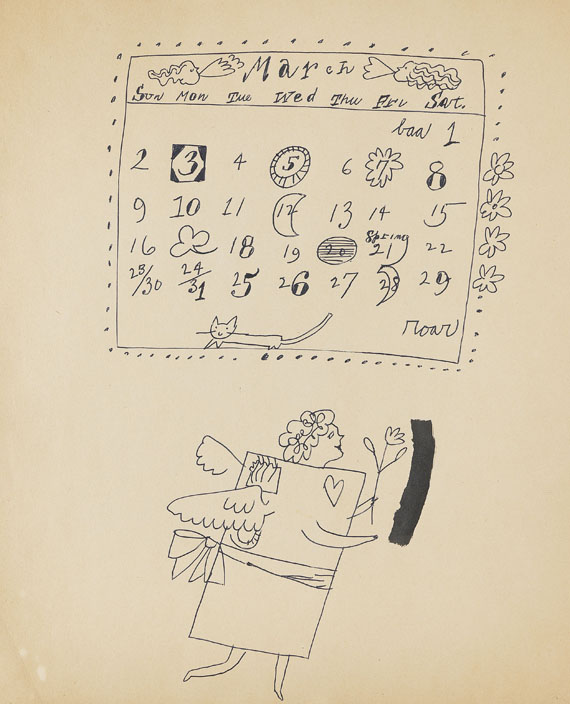 March
Sun Mon Tue Wed Thu Fri Sat.
baa 1
2 3 4 5 6 7 8
9 10 11 12 13 14 15
Spring
16 18 19 20 21 22
23/30 24/31 25 26 27 28 29
roar